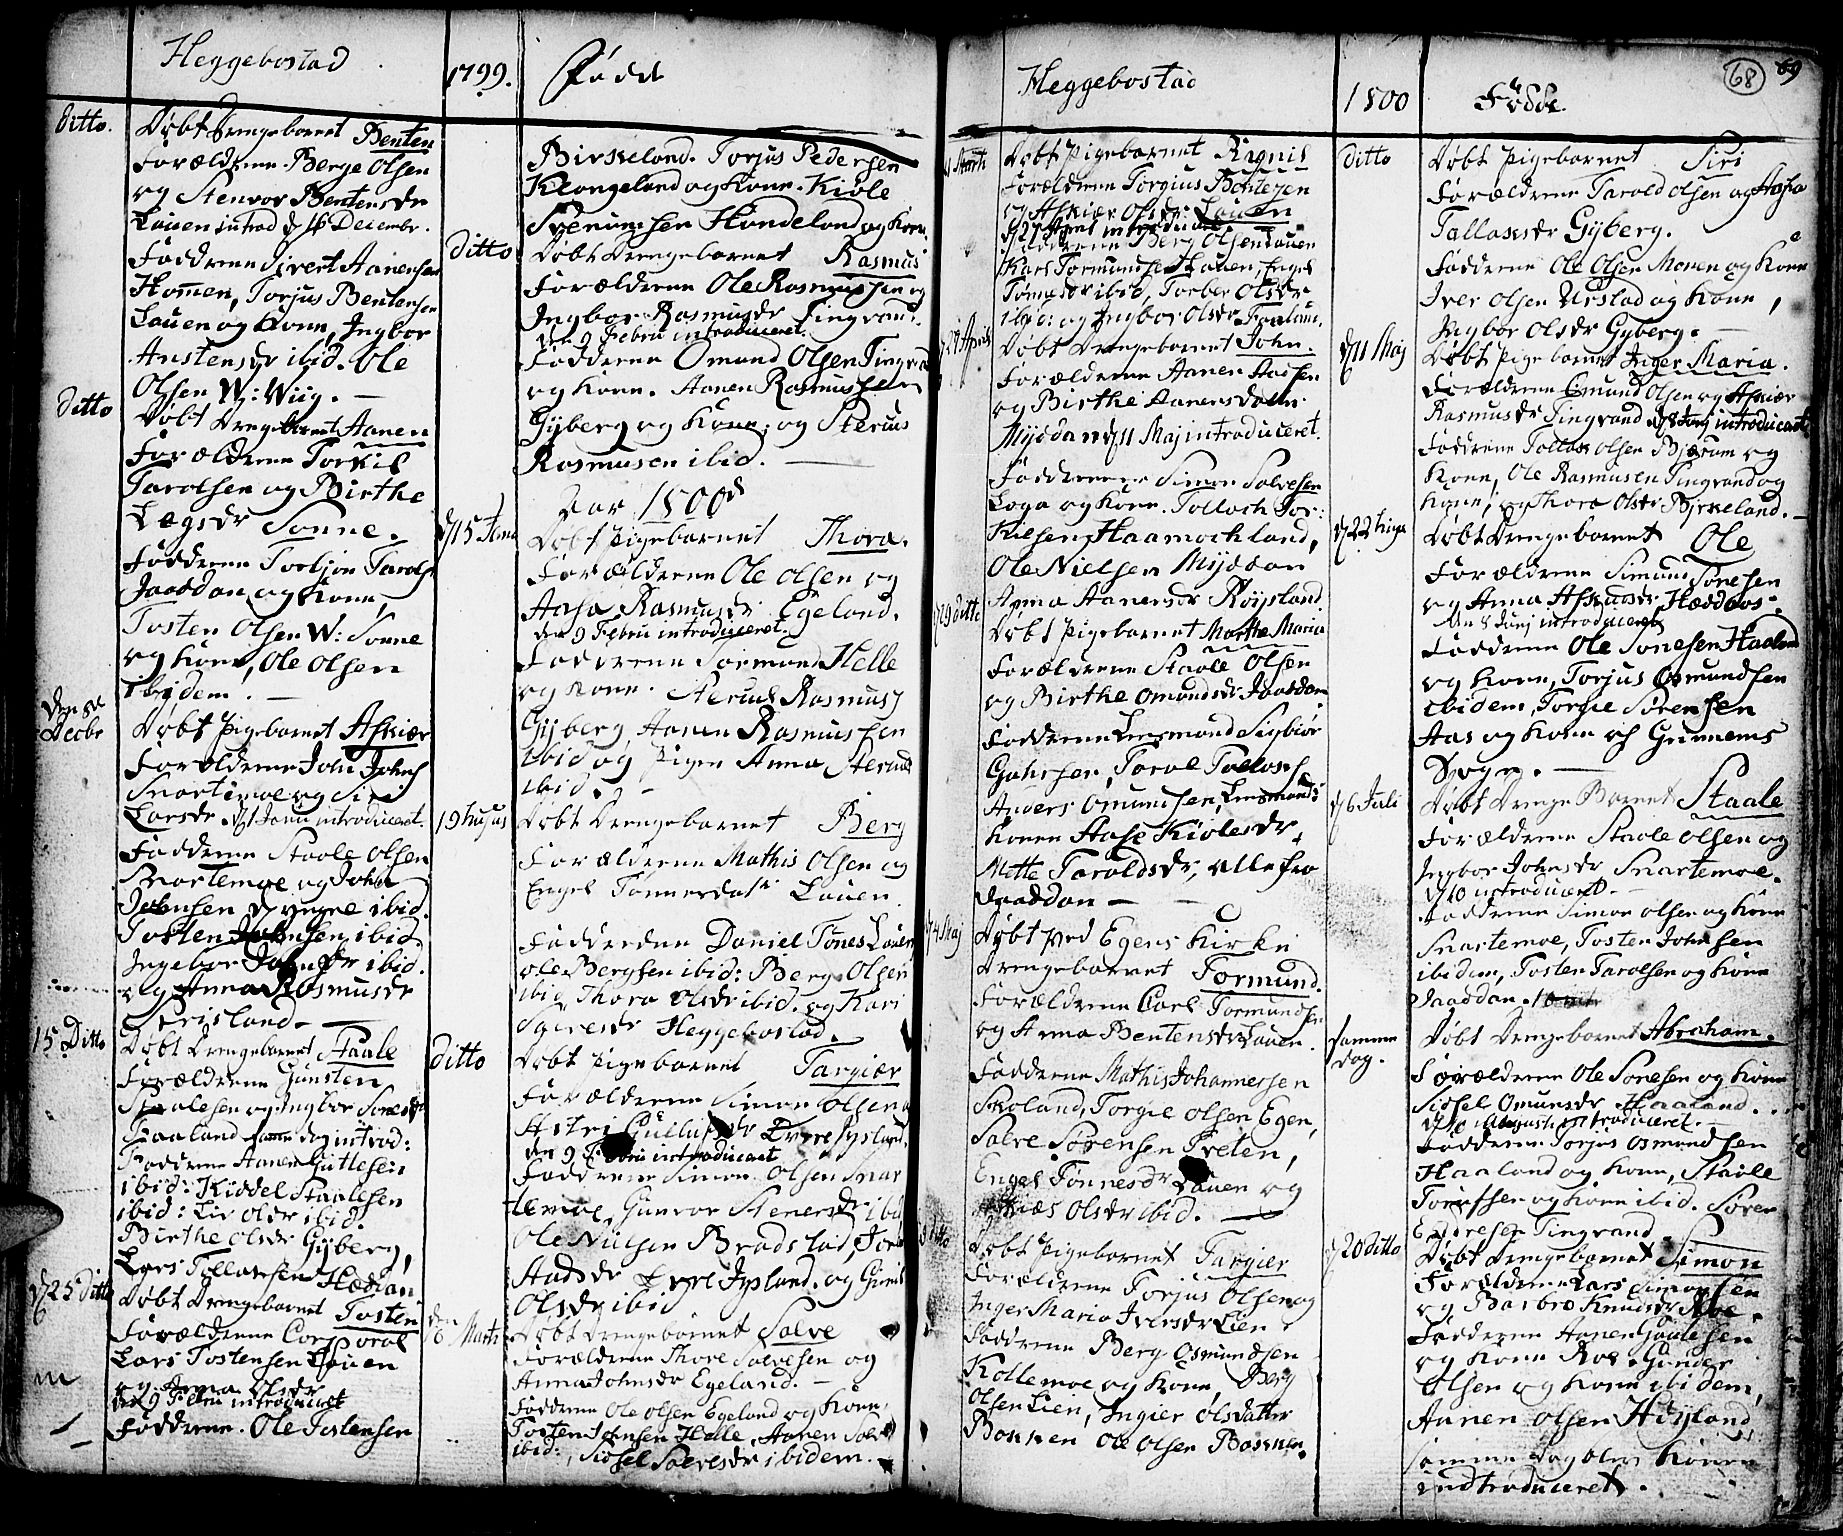 Heggebostad
1799.
Fødd
ditto.
Døbt Drengebarnet Benten
Forældrene Berge Olsen
og Stenvor Bentensdr
Lauen introd d 26 Decembr.
Fadderne Sivert Aanensen
Hommen, Torjus Bentensen
Lauen og Kone, Ingbor
Austensdr ibid. Ole
Olsen W: Wiig. —
ditto
Døbt Drengebarnet Aanen
Forældrene Torkil
Tarolsen og Birthe
Legsdr Sonne.
Fadderne Torbjøn Tarols
Jaaddan og Kone,
Tosten Olsen W: Sonne
og Kone, Ole Olsen
ibidem. —
Decbr
Døbt Pigebarnet Askiær
Forældrene John Johns
Snartemoe og Siri
Larsdr. d 1 Janu introduceret.
Fadderne Staale Olsen
Snartemoe og John
Johnsen d yngre ibid.
Tosten Johnsen ibid.
Ingebor Johnsdr ibid.
og Anna Rasmusdr
Frisland —
15 Ditto
Døbt Drengebarnet Staale
Forældrene Gunsten
Staalesen og Ingbor Sonesdr
Haaland samme dag introd:
Fadderne Aanen Gullesen
ibid: Kiddel Staalesen
ibid: Liv Olsdr ibid.
Birthe Olsdr Gyberg,
Lars Tollaksen Hædian
d 25 ditto
Døbt Drengebarnet Tosten
Forældrene Corporal
Lars Tostensen Lauen
og Anna Olsdr
den 9 Febru introduceret
Fadderne. Ole Tostensen
Birkeland. Torjus Pedersen
Klongeland og Kone. Kiøle
Syenumsen Hundeland og Kone.
ditto
Døbt Drengebarnet Rasmus
Forældrene Ole Rasmussen og
Ingbor Rasmusdr Tingvand.
den 9 Febru introduceret.
Fadderne Omund Olsen Tingvand
og Kone. Aanen Rasmussen
Gyberg og Kone, og Sterius
Rasmusen ibid. —
Aar 1800
d 15 Janu
Døbt Pigebarnet Thora.
Forældrene Ole Olsen og
Aasa Rasmusdr Egeland.
den 9 Febru introduceret.
Fadderne Tormund Helle
og Kone. Sterius Rasmuss
Gyberg Aanen Rasmussen
ibid og Pigen Anna Steriusdr
ibid. —
19 hujus
Døbt Drengebarnet Berg
Forældrene Mathis Olsen og
Engel Tønnesdatr Lauen.
Fadderene Daniel Tønes Lauen
Ole Bergsen ibid: Berg Olsen
ibid Thora Olsdr ibid. og Kari
Heggebostad.
ditto
Døbt Pigebarnet Targiær
Forældrene Simon Olsen og
Astri Gullufsdr Evre Jysland.
den 9 Febru introduceret
Fadderne Simon Olsen Snar
temoe, Gunvor Stenersdr ibid
Ole Nielsen Bradstad,
Evre Jysland. og Gunil
Olsdr ibid
den Marti
Døbt Drengebarnet Salve
Forældrene Thore Salvesen og
Anna Johnsdr Egeland. —
Fadderne Ole Olsen Egeland og Kone,
Tosten Jensen Helle, Aanen Salv
ibid:, Sidsel Salvesdr ibidem. —
Heggebostad
1800
Fødde
68
69
Marti
Døbt Pigebarnet Ragnil
Forældrene Torgius Bentesen
og Askiær Olsdr Lauen
d 27 April introduceret
Fadderene Berg Olsen Lauen
Karl Tormundsen Lauen, Engel
Tønnesdr ibid, Torber Olsdr
ibid: og Ingbor Olsdr
27 Aprili
Døbt Drengebarnet John.
Forældrene Aanen Aasen
og Birthe Aanensdatr
Myddan d 11 Maj introduceret.
Fadderene Simon Salvesen
Loga og Kone. Tolloch Tor:
Kiesen, Haamockland,
Ole Nielsen Myddan
Anna Aanensdr Røysland
29 ditto
Døbt Pigebarnet Marthe Maria
Forældrene Staale Olsen
og Birthe Omundsdr Jaaddan
Fadderne Lensmand Sigbiør
Gahrsen, Tarol Tollakss
Anders Omundsen, Lensmands
Konen Aase Kiølesdr,
Mette Taroldsdr, alle fra
Jaaddan —
4 Maj
Døbt ved Egens Kirke
Drengebarnet Tormund.
Forældrene Carl Tormundsen
og Anna Bentensdr Lauen.
Fadderne Mathis Johannessen
Skoland, Torgie Olsen Egen,
Salve Sørensen Treten,
Engel Tønnesdr Lauen og
Olsdr ibid. —
ditto
Døbt Pigebarnet Targier
Forældrene Torjus Olsen og
Inger Maria Iversdr Lien.
Fadderne Berg Osmundsen
Kollemoe og Kone, Berg
Olsen Lien, Ingier Olsdatter
Bakken Ole Olsen Bakken.
ditto
Døbt Pigebarnet Siri
Forældrene Tarold Olsen og Aasa
Tallaksdr Gyberg.
Fadderne Ole Olsen Monen og Kone
Iver Olsen Urstad og Kone,
Ingbor Olsdr Gyberg. —
d 11 Maj
Døbt Pigebarnet Inger Maria.
Forældrene Osmund Olsen og Askiær
Rasmusdr Tingvand d 8 Junj introduceret
Fadderne Tollak Olsen Bjærum og
Kone, Ole Rasmusen Tingvand og
Kone, og Thora Olsdr Birkeland. —
d 22 hujus
Døbt Drengebarnet Ole
Forældrene Simund Sønesen
og Anna Asmusdr
den 8 Junj introduceret
Fadderne Ole Sonesen Haaland
og Kone, Torjus Osmundsen
ibidem, Torgie Sørensen
Aas og Kone af Grinnems
Sogn. —
d 6 Juli
Døbt Drenge Barnet Staale
Forældrene Staale Olsen og
Ingbor Johnsdr Snartemoe.
d 10 introduceret. —
Fadderne Simon Olsen og Kone
Snartemoe, Tosten Johnsen
ibidem, Tosten Tarolsen og Kone
Jaaddan.
samme
dag.
Døbt Drengebarnet Abraham.
Forældrene Ole Sonesen og Kone
Sidsel Omunsdr Haaland.
d 10 Augusti introduceret. —
Fadderne Torjus Osmundsen
Haaland og Kone, Staale
og Kone ibid. Søren
Endresen Tingvand
d 20 ditto
Døbt Drengebarnet Simon
Forældrene Lars Simonsen
og Barbro Knudsdr
Fadderne Aanen Gaulesen
og Kone Roe. Gunder
Olsen og Kone ibidem,
Aanen Olsen Høyland,
samme dag blev Konen
indtroduceret.